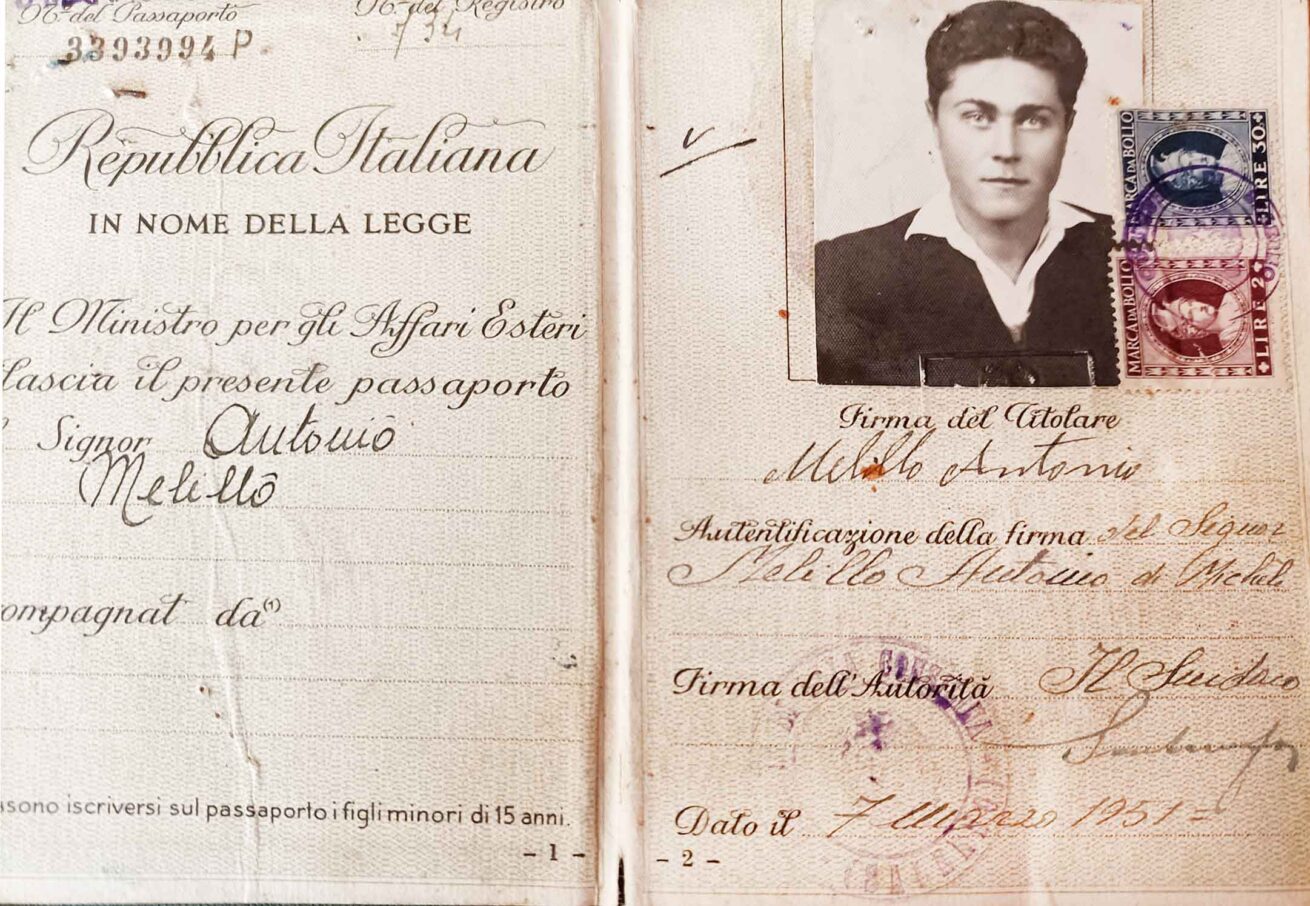 N.º del Passaporto
N.º del Registro
3393994 P
Repubblica Italiana
IN NOME DELLA LEGGE
Il Ministro per gli Affari Esteri
lascia il presente passaporto
Signor Antonio
Melillo
ompagnat da (1)
ssono iscriversi sul passaporto i figli minori di 15 anni.
- 1 -
MARCA DA BOLLO
LIRE 30
MARCA DA BOLLO
LIRE 2
Firma del Titolare
Melillo Antonio
Autentificazione della firma del Signor
Melillo Antonio di Michele
Firma dell'Autorità Il Sindaco
Dato il 7 Marzo 1951=
- 2 -